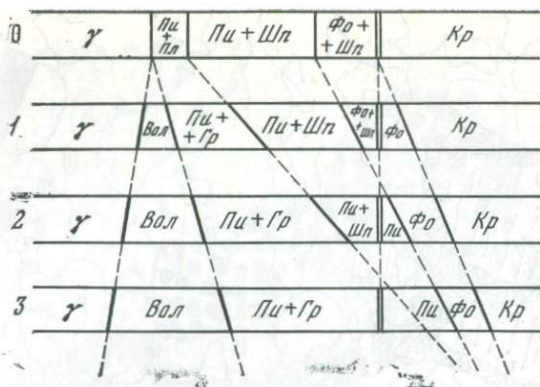 0 γ Пи + Пл Пи + Шп Фо + + Шп Кр
1 γ Вол Пи + + Гр Пи + Шп Фо + + Шп Фо Кр
2 γ Вол Пи + Гр Пи + Шп Пи Фо Кр
3 γ Вол Пи + Гр Пи Фо Кр